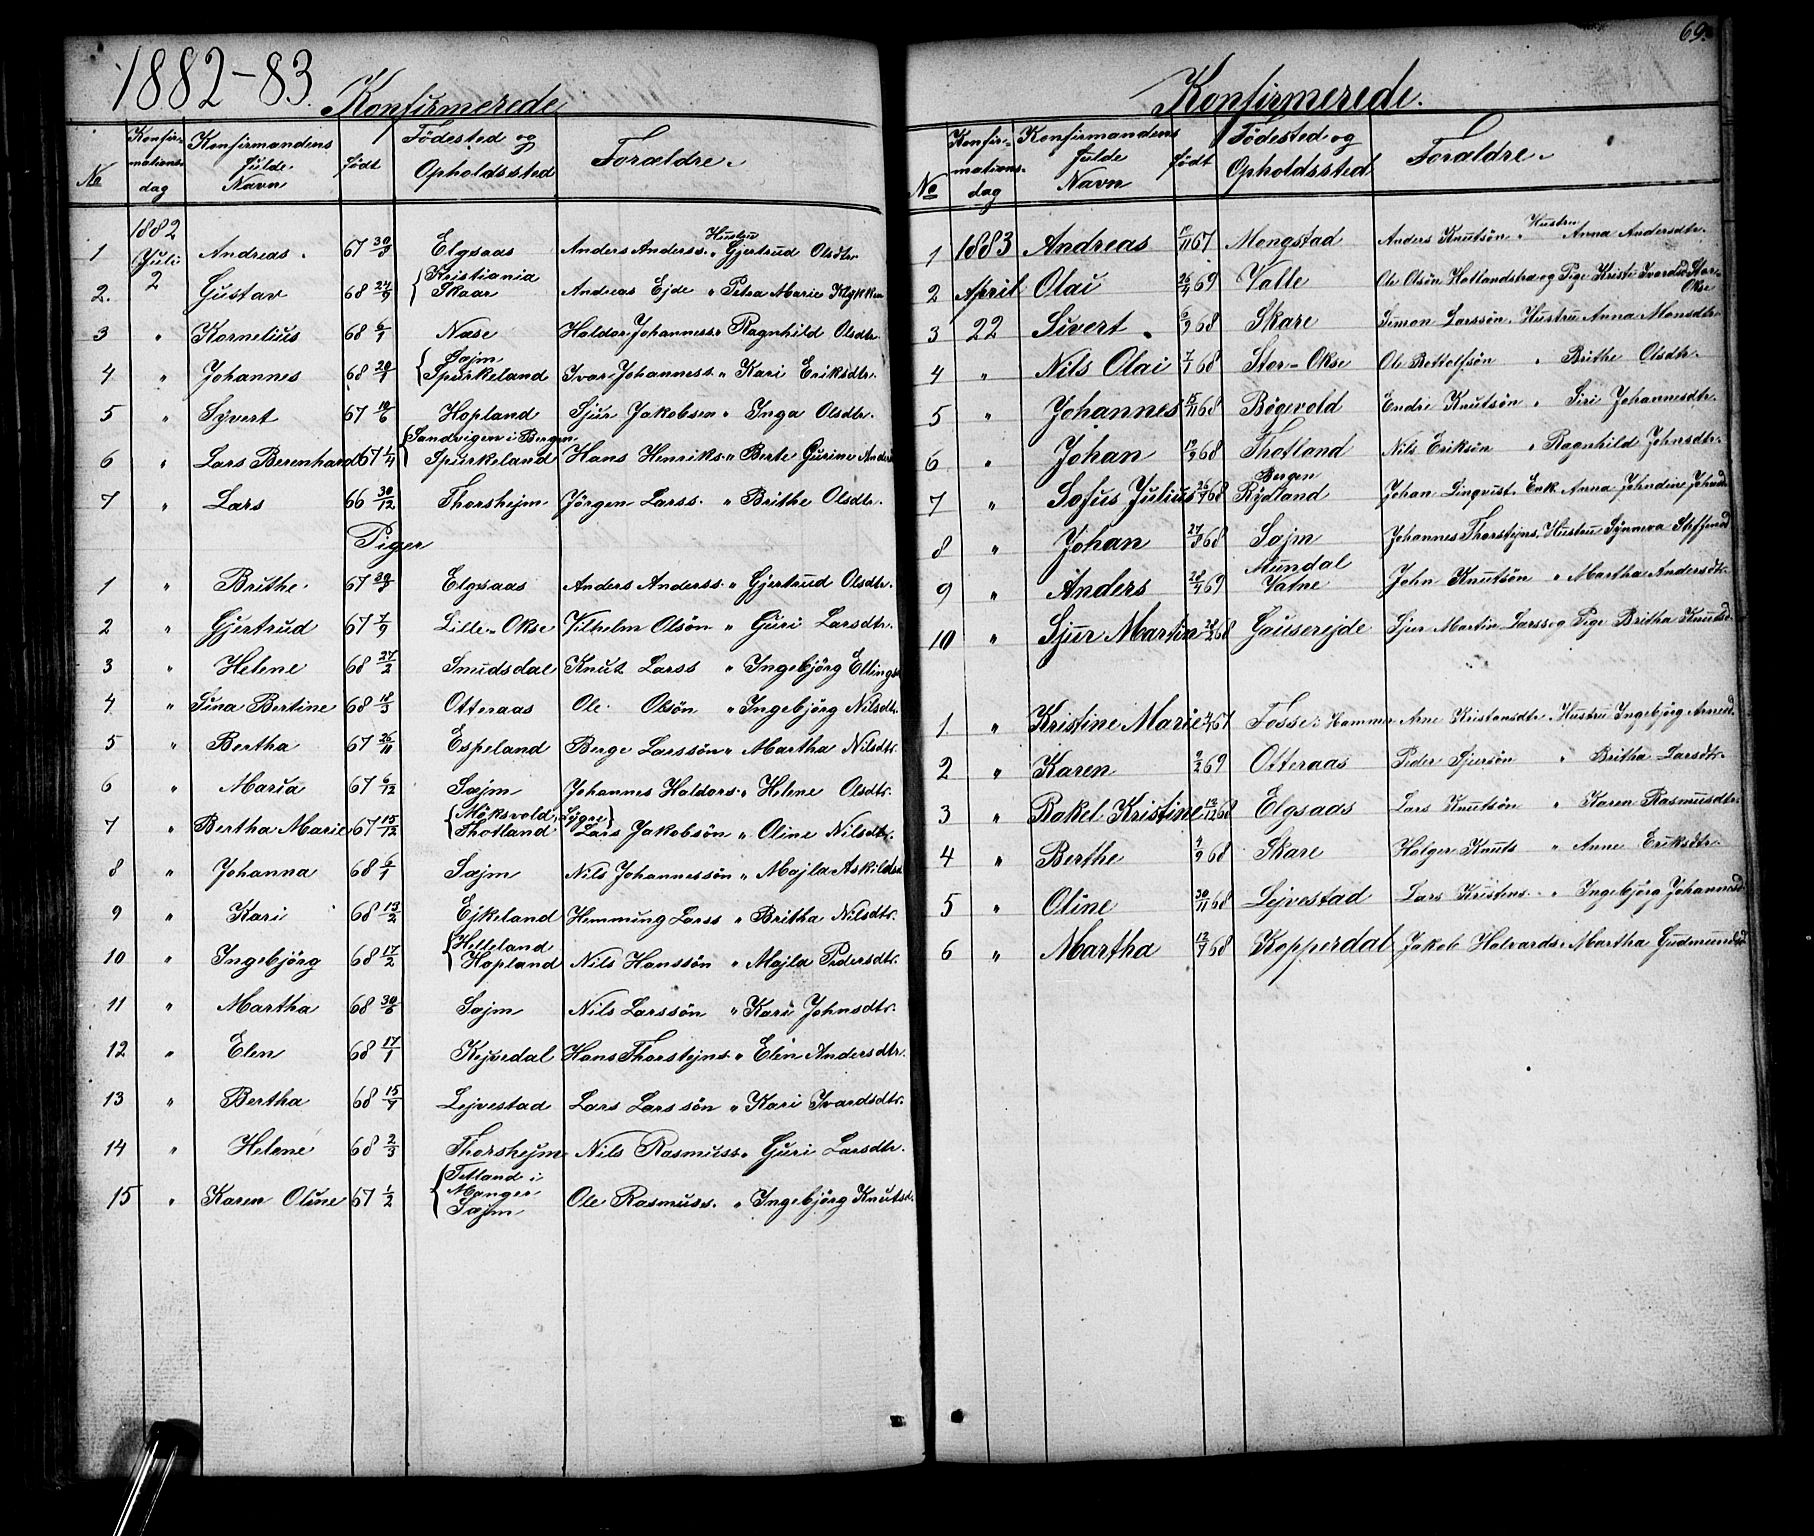 1882-83. Konfirmerede
№ Konfir-mations-dag Konfirmandens fulde Navn født Födested og Opholdssted Foræeldre.
1882
1 Juli Andreas. 67 30/3 Elgsaas Anders Anderss. " Hustru Gjertrud Olsdtr.
2. 2 Gustav 68 27/9 {Kristiania Skaar Andreas Ejde " Petra Marie
3 " Kornelius 68 6/1 Næse Haldor Johanness. Ragnhild Olsdtr.
4. " Johannes 68 20/1 {Sæjm Spurkeland Ivar Johanness. " Kari Eriksdtr.
5 " Syvert 67 10/6 Hopland Sjur Jakobsen " Inga Olsdtr.
6 " Lars Berenhard 67 1/4 {Sandvigen i Bergen Spurkeland Hans Henriks. " Berte Gurine Anders
7 " Lars 66 30/12 Thorshejm Jörgen Larss. " Brithe Olsdtr.
Piger
1 " Brithe. 67 30/3 Elgsaas Anders Anderss. " Gjertrud Olsdtr.
2 " Gjertrud 67 7/9 Lille-Okse Vilhelm Olsön " Guri Larsdtr.
3 " Helene 68 27/2 Smudsdal Knut Larss " Ingebjörg Ellings
4 " Sina Bertine 68 18/3 Otteraas Ole Olsön " Ingebjörg Nilsdtr.
5 " Bertha 67 26/11 Espeland Berge Larssön " Martha Nilsdtr.
6 " Maria 67 6/12 Sæjm Johannes Haldors. " Helene Olsdtr.
7 " Bertha Marie 67 15/12 {Möksvold, Lygre} Thotland Lars Jakobsön " Oline Nilsdtr.
8 " Johanna 68 6/1 Sæjm Nils Johannessön " Majla Askildsd
9 " Kari 68 13/2 Ejkeland Hemming Larss " Britha Nilsdtr.
10 " Ingebjörg 68 17/2 {Helleland Hopland Nils Hanssön " Majla Pedersdtr.
11 " Martha 68 30/6 Sæjm Nils Larssön " Kari Johnsdtr.
12 " Elen 68 17/1 Kejvedal Hans Thorstejns. " Elen Andersdtr.
13 " Bertha 68 15/7 Lejvestad Lars Larssön " Kari Ivarsdtr.
14 " Helene 68 2/3 Thorshejm Nils Rasmuss. " Guri Larsdtr.
15 " Karen Oline 67 1/2 {Tetland i Manger. Sæjm Ole Rasmuss. " Ingebjörg Knutsd.
69.
Konfirmerede.
№ Konfir-mations-dag Konfirmandens fulde Navn født Födested og Opholdssted Forældre.
1 1883 Andreas 10/11 67 Mongstad Anders Knutsön " Hustru Anna Andersdtr.
2 April Olai 26/4 69 Valle Ole Olsön Hatlandstra og Pige Kristi Ivarsd Stor-Okse
3 22 Sivert. 6/9 68 Skare Simon Larssön. Hustru Anna Monsdtr.
4 " Nils Olai 7/7 68 Stor-Okse Ole Bottolfsön " Brithe Olsdtr.
5 " Johannes 15/11 68 Bögevold Endre Knutsön " Siri Johannesdtr.
6 " Johan 19/9 68 Thotland Nils Eriksön " Ragnhild Johnsdtr.
7 " Sofus Julius 26/7 68 Bergen Rydland Johan Linqvist. Enk. Anna Johndine Johnsd
8 " Johan 27/9 68 Sæjm Johannes Thorstejns. Hustru Synneva Steffensd
9 " Anders 28/4 69 Mundal Vatne John Knutsön " Martha Andersdtr.
10 " Sjur Martin 28/2 68 Gauserejde Sjur Martin Larss og Pige Britha Knutsd.
1 " Kristine Marie 67 Fosse i Hammer Arne Kristensdtr. Hustru Ingebjörg Arnesd.
2 " Karen 9/2 69 Otteraas Peder Sjursön " Britha Larsdtr.
3 " Rakel Kristine 12/12 68 Elgsaas Lars Knutsön " Karen Rasmusdtr.
4 " Berthe 4/9 68 Skare Holger Knuts " Anne Eriksdtr.
5 " Oline 30/11 68 Lejvestad Lars Kristens. " Ingebjörg Johannesd
6 " Martha 12/7 68 Kopperdal Jakob Halvards. Martha Gudmundsd